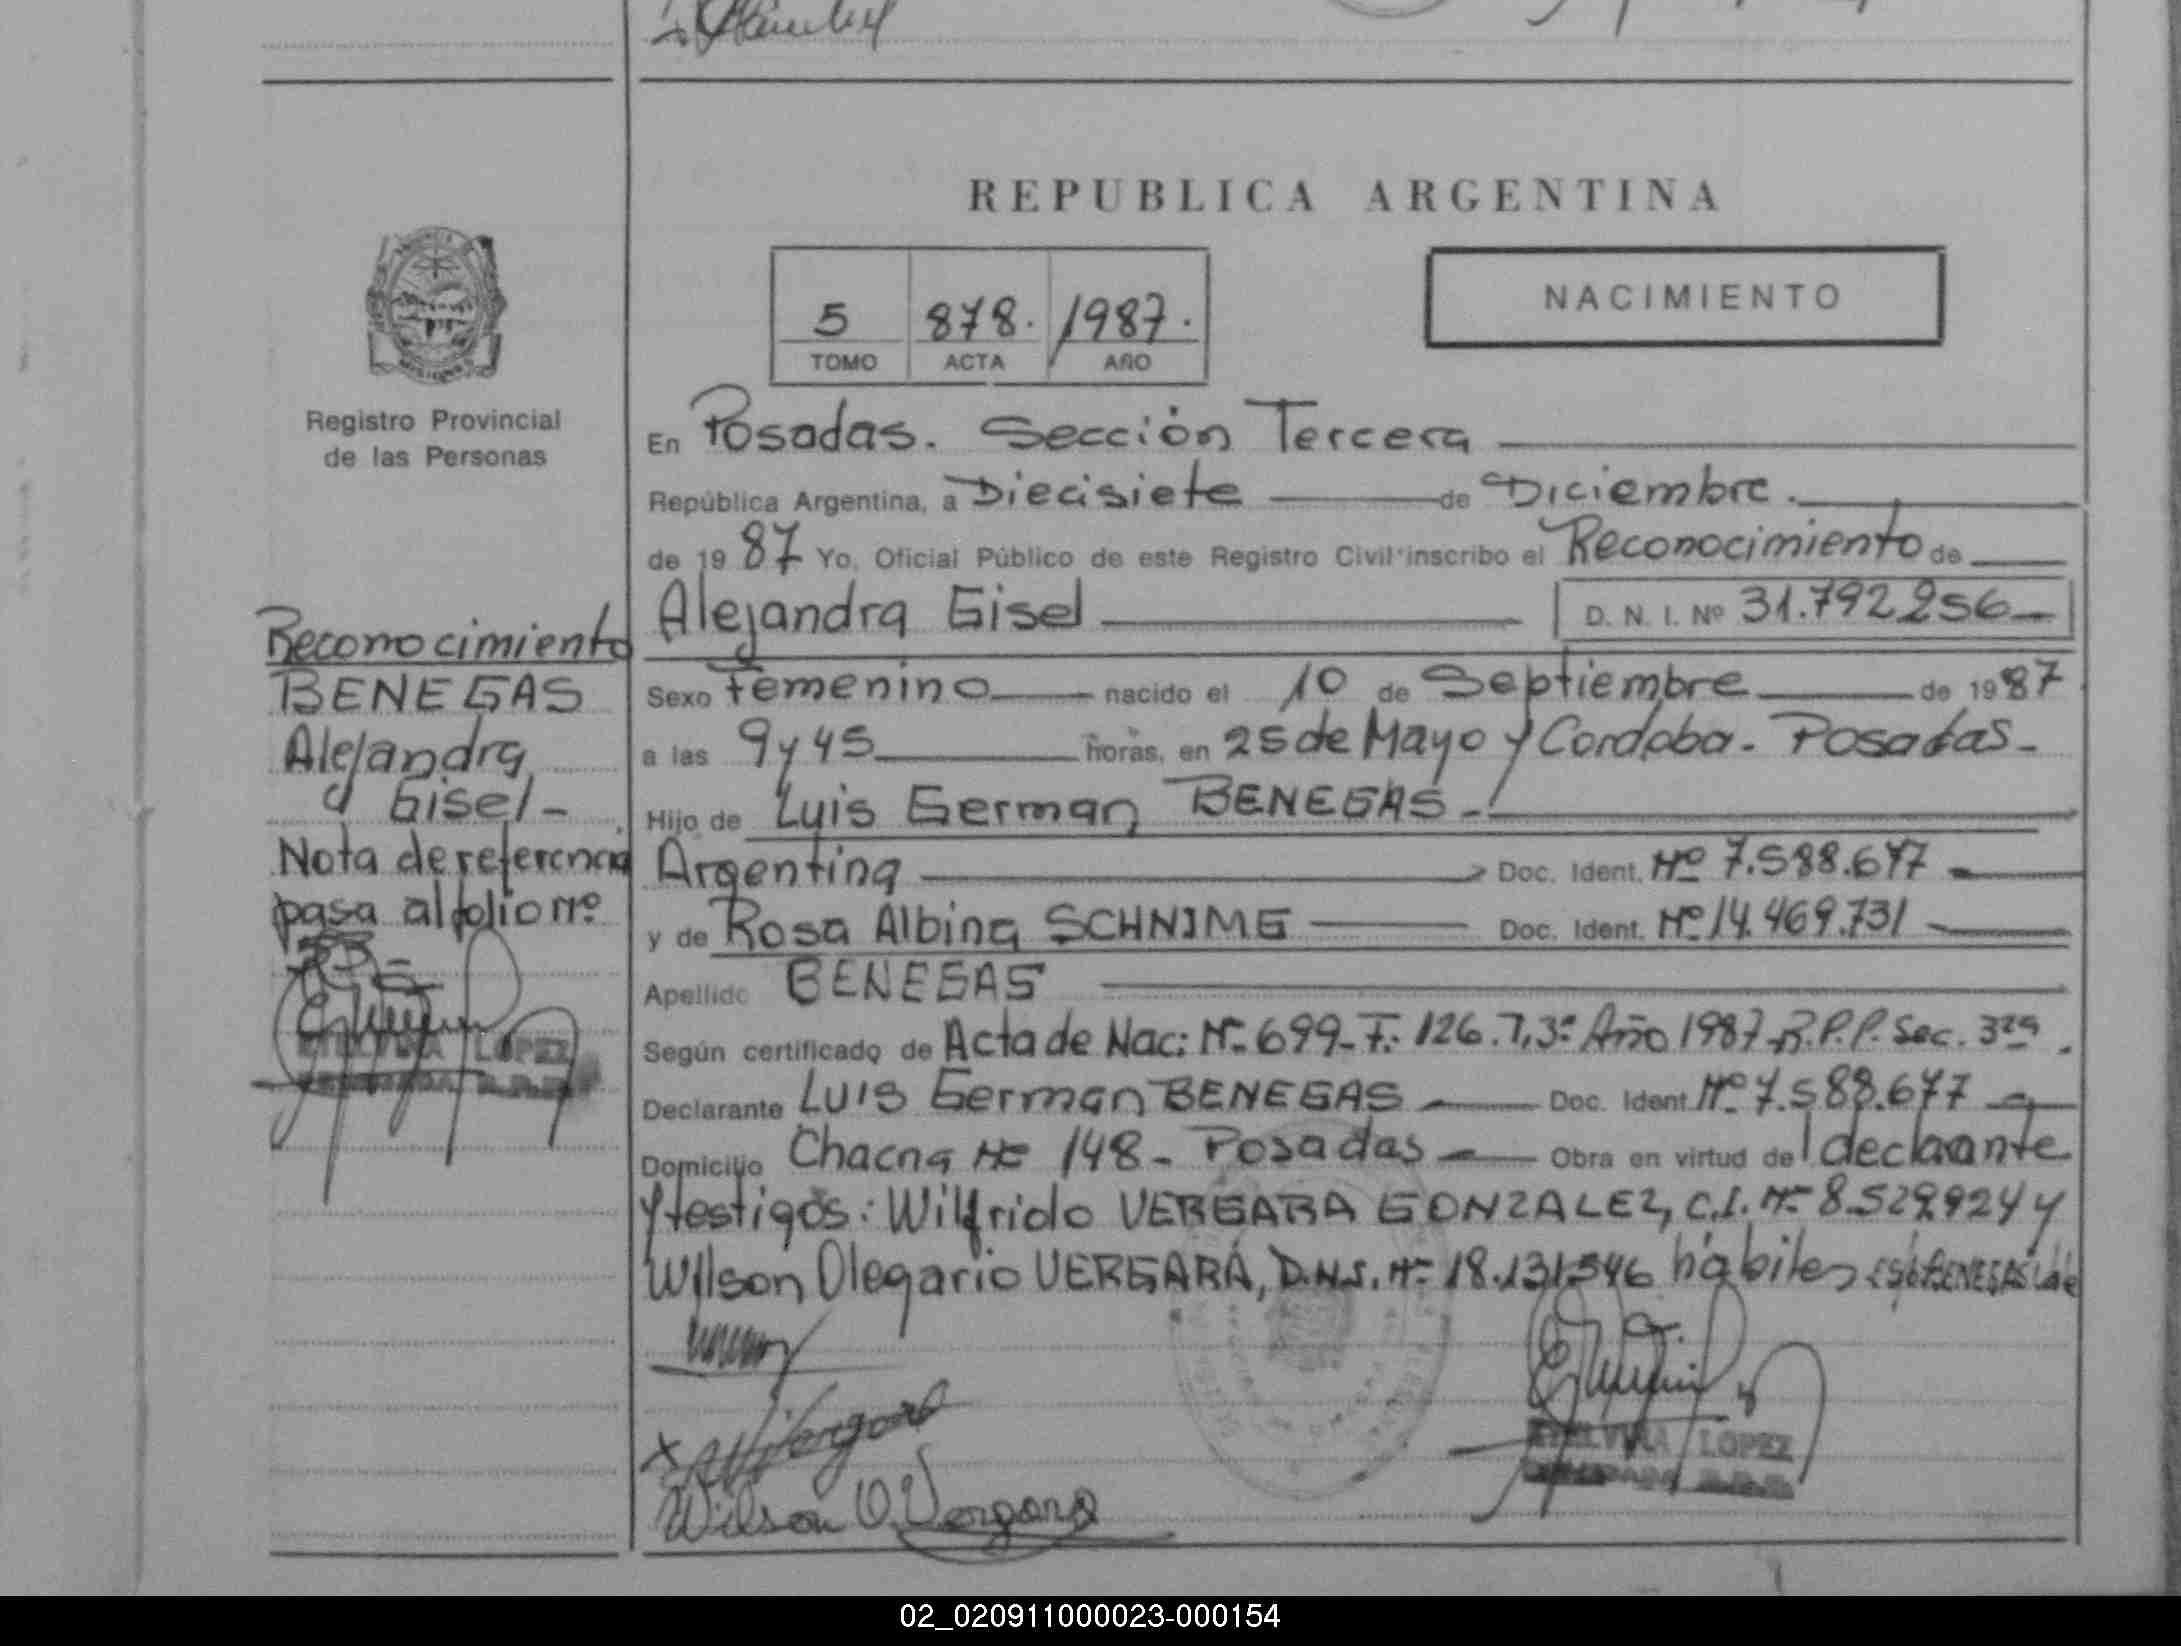 REPUBLICA ARGENTINA
5 878. 1987.
TOMO ACTA AÑO
NACIMIENTO
Registro Provincial
de las Personas
En Posadas. Sección Tercera
República Argentina, a Diecisiete de Diciembre.
de 1987 Yo, Oficial Público de este Registro Civil inscribo el Reconocimiento de
Alejandra Gisel D. N. I. Nº 31.792.256
Sexo Femenino nacido el 10 de Septiembre de 1987
a las 9 y 45 horas, en 25 de Mayo y Cordoba. Posadas-
Hijo de Luis German BENEGAS-
Argentina Doc. Ident. Nº 7.588.677
y de Rosa Albina SCHNIME Doc. Ident. Nº 14.469.731
Apellido BENEGAS
Según certificado de Acta de Nac: Nº 699-F: 126.T,3º Año 1987-R.P.P. Sec. 3ra.
Declarante Luis German BENEGAS Doc. Ident. Nº 7.588.677
Domicilio Chacra Nº 148- Posadas Obra en virtud del declaante
y testigos: Wilfrido VERGARA GONZALEZ, C.I. Nº 8.529.924 y
Wilson Olegario VERGARA, D.N.I. Nº 18.131.546 hábiles
Wilson O. Vergara
LOPEZ
Reconocimiento
BENEGAS
Alejandra
Gisel-
Nota de referencia
pasa al folio nº
LOPEZ
02_020911000023-000154